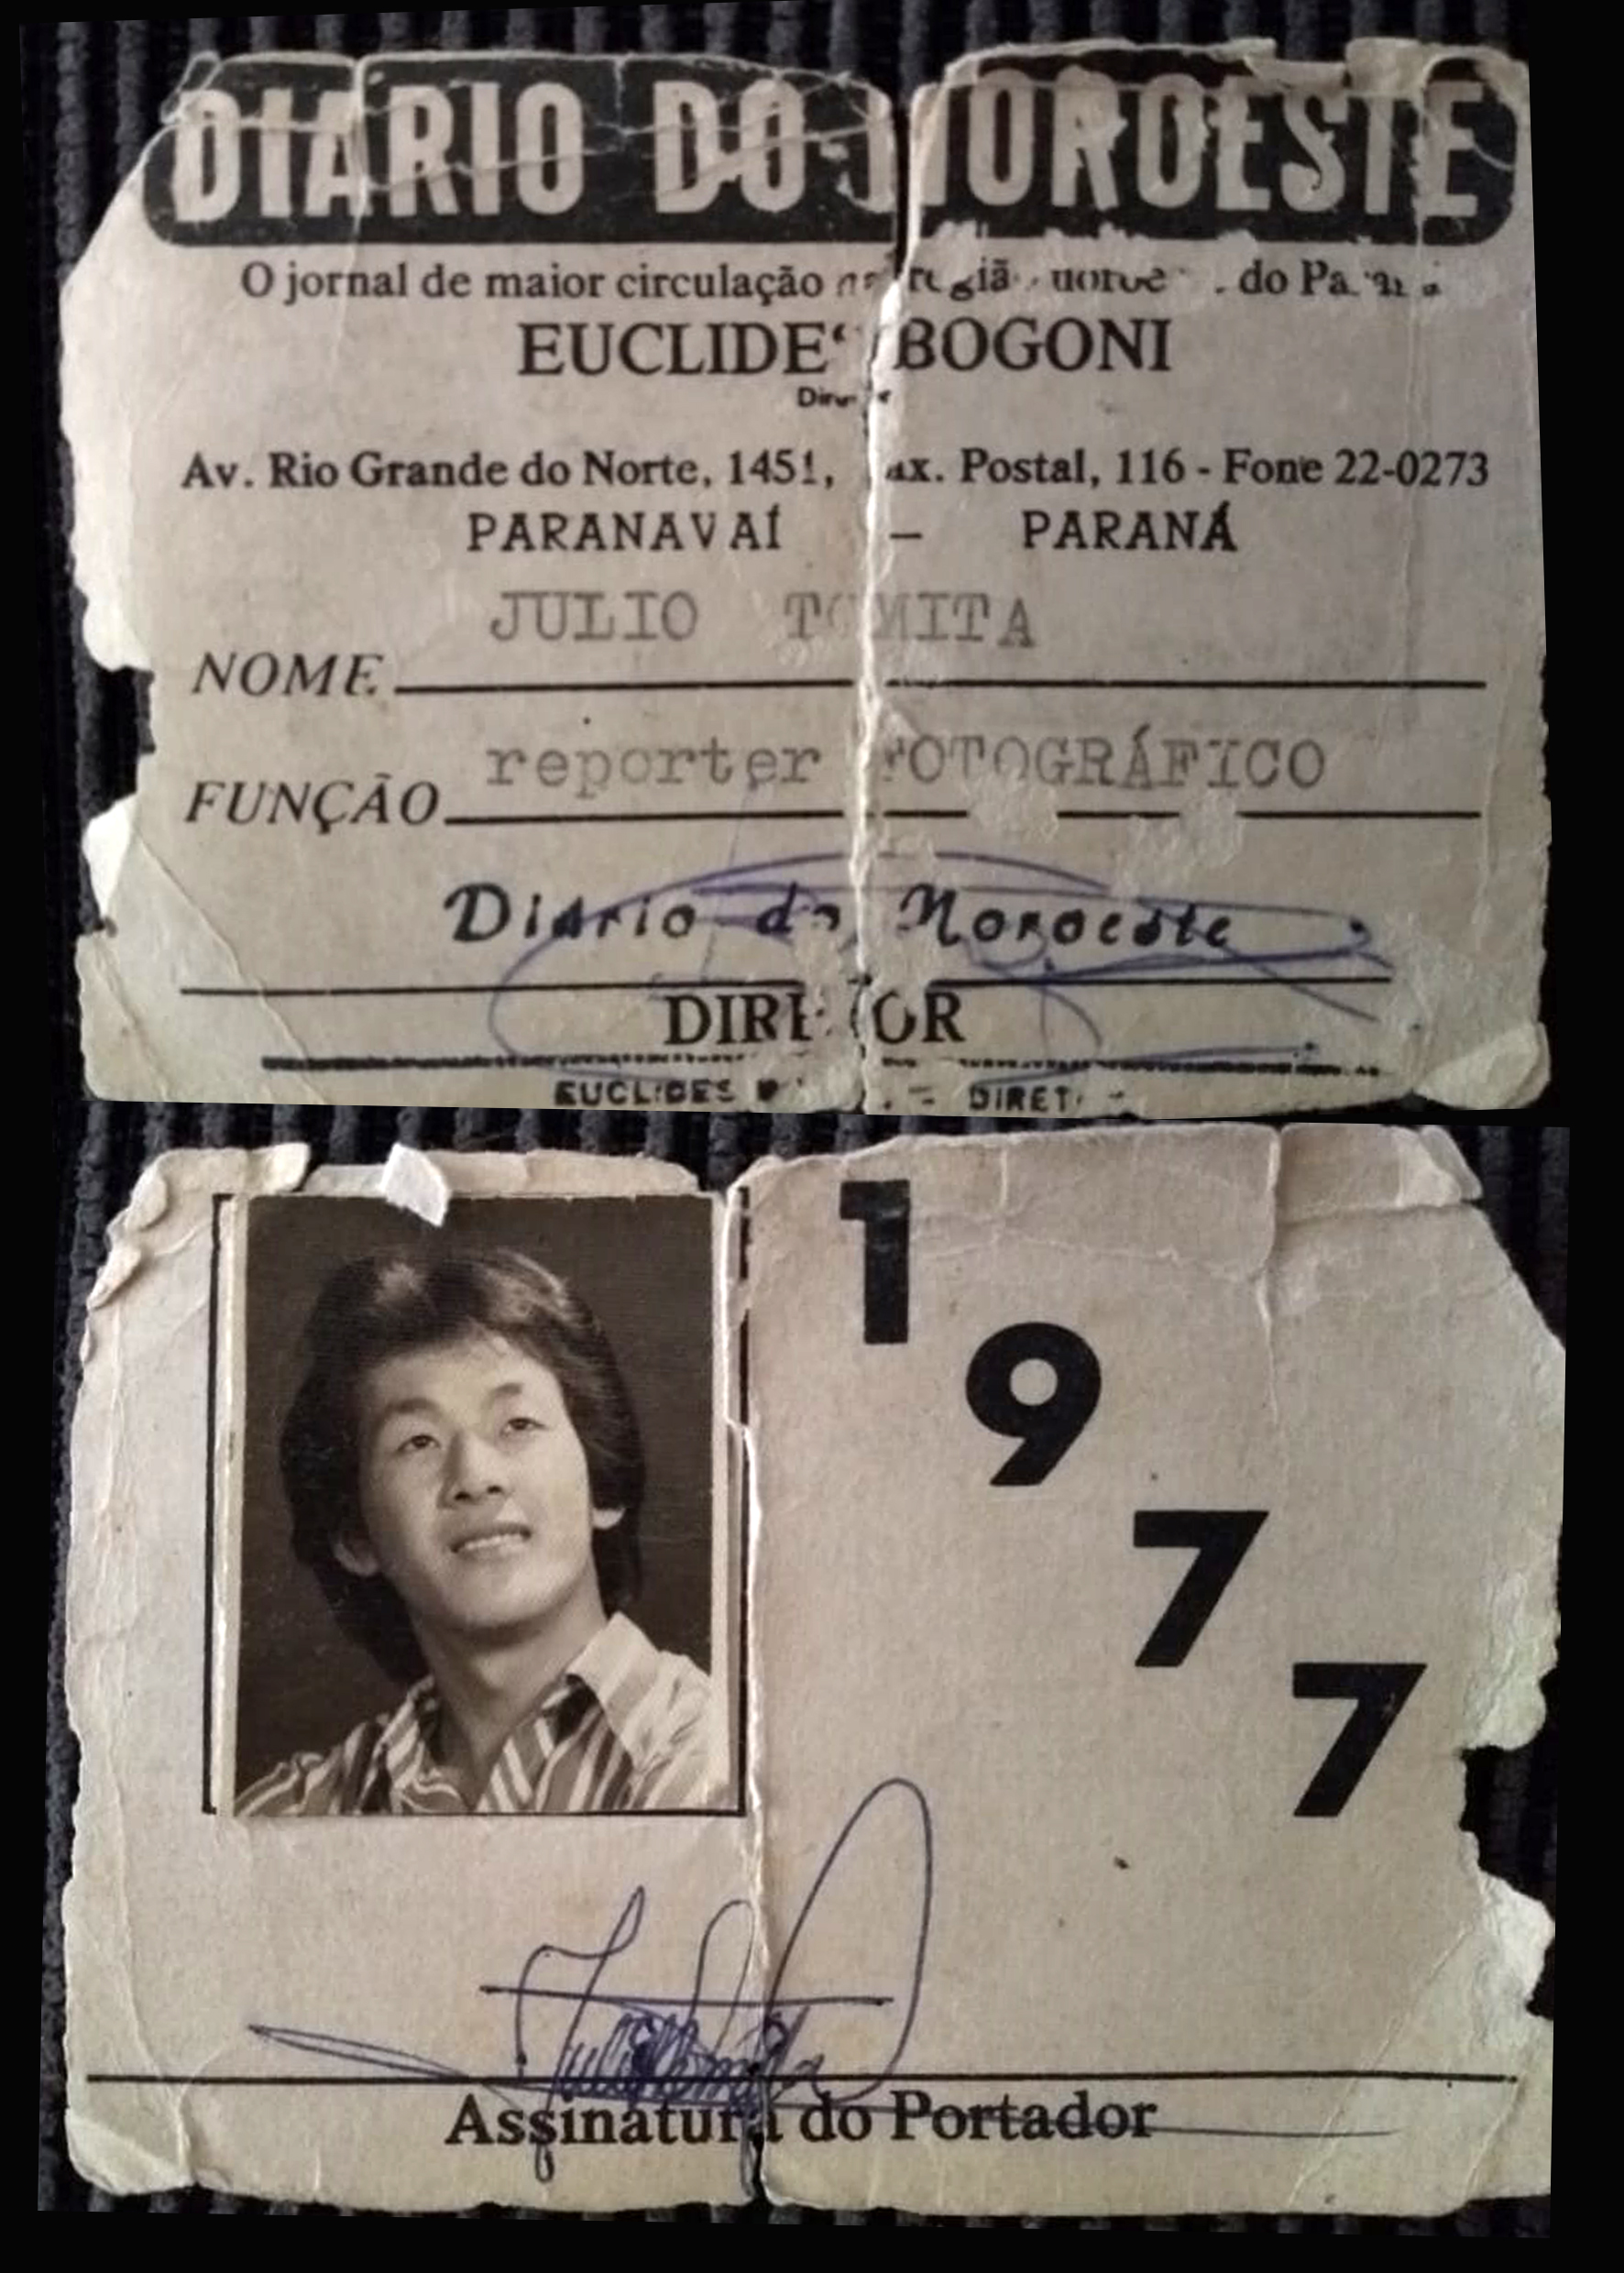 DIÁRIO DO NOROESTE
O jornal de maior circulação do Pa
EUCLIDE BOGONI
Av. Rio Grande do Norte, 1451, ax. Postal, 116 - Fone 22-0273
PARANAVAÍ - PARANÁ
JULIO TOMITA
NOME
reporter FOTOGRÁFICO
FUNÇÃO
Diário do Noroeste
DIRETOR
EUCLIDES - DIRET
1
9
7
7
Julio Tomita
Assinatura do Portador